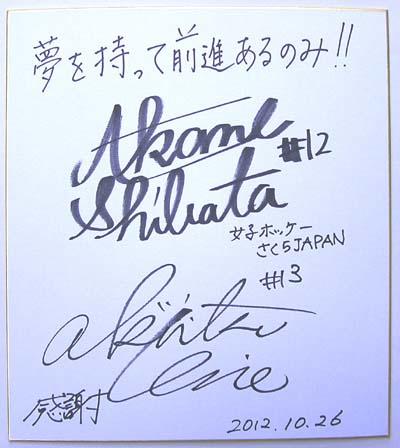 夢を持って前進あるのみ!!
Akane #12
Shibata
女子ホッケー
さくらJAPAN
#13
感謝
2012.10.26